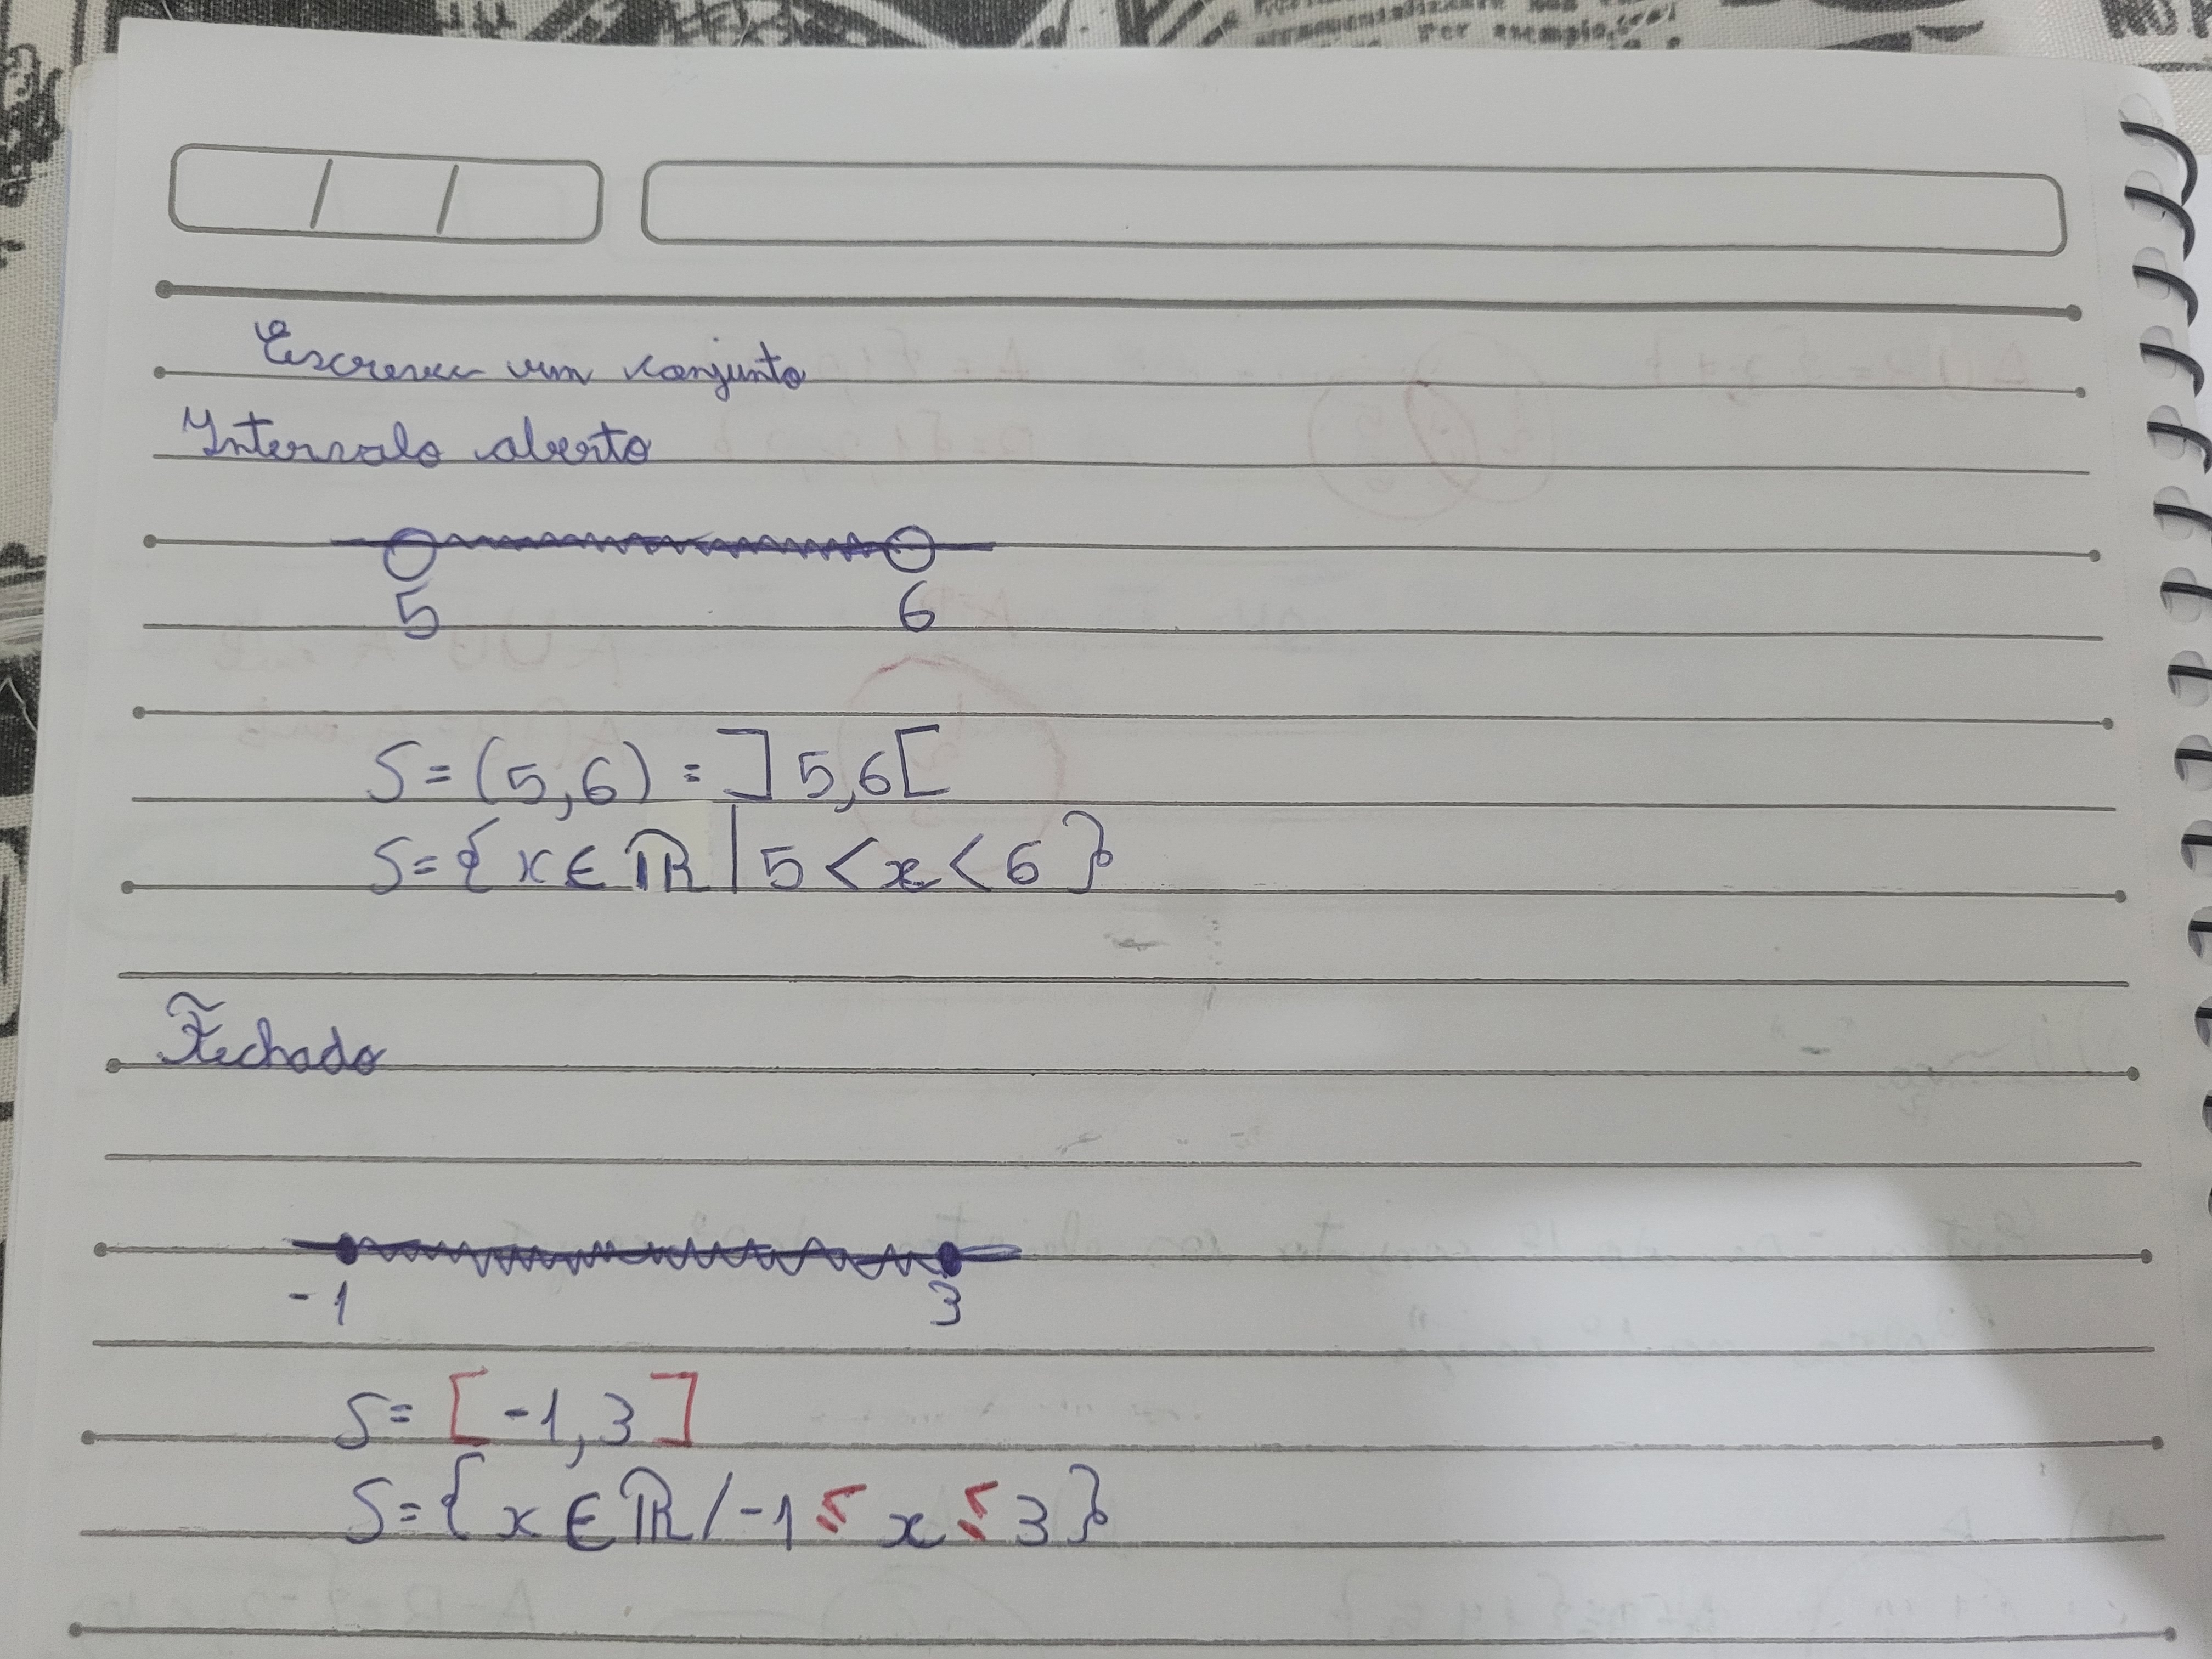 Escrever um conjunto
Intervalo aberto
5 6
S = (5,6) = ]5,6[
S = {x ∈ ℝ | 5 < x < 6}
Fechado
-1 3
S = [-1,3]
S = {x ∈ ℝ / -1 ≤ x ≤ 3}